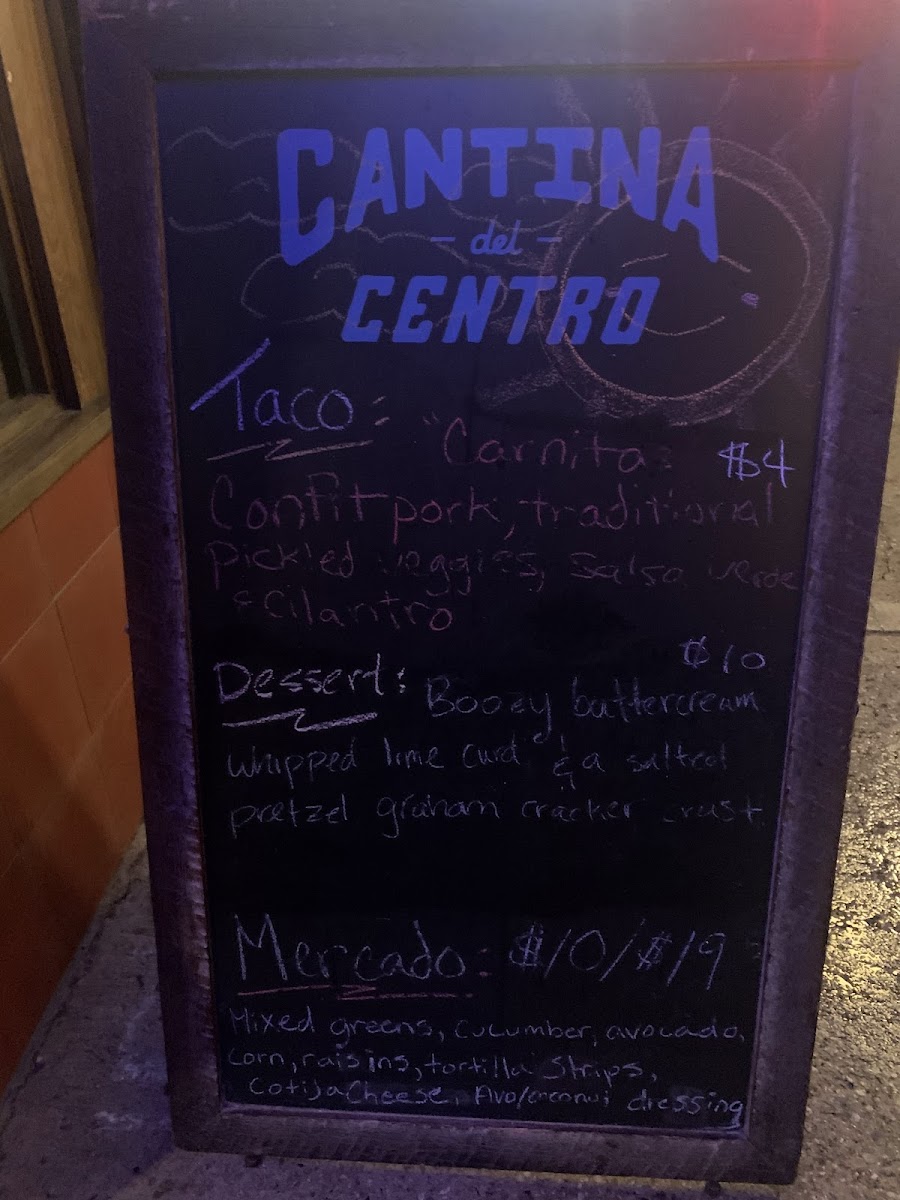 CANTINA
- del -
CENTRO
Taco:
"Carnita: $4
Confit pork, traditional
Pickled veggies, Salsa verde
& Cilantro
$10
Dessert: Boozy buttercream
whipped lime curd & a salted
pretzel graham cracker crust
Mercado: $10/$19
Mixed greens, cucumber, avocado,
corn, raisins, tortilla Strips,
Cotija Cheese, Avo/coconut dressing